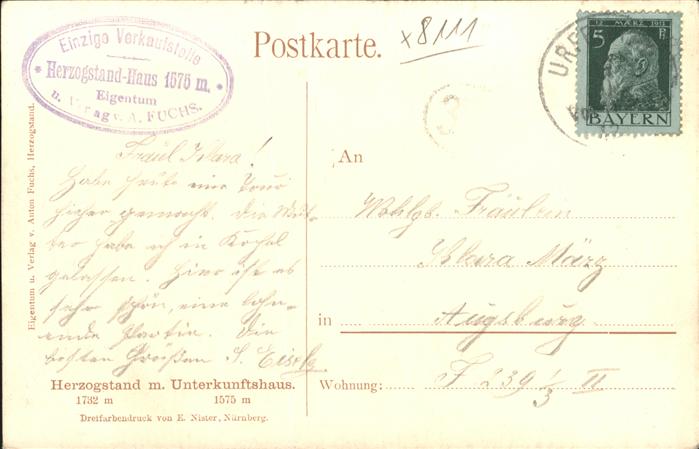 Einzige Verkaufstelle
* Herzogstand-Haus 1575 m. *
Eigentum
u. Verlag v. A. FUCHS.
Postkarte.
x8111
12. MÄRZ 1911
5 Pf
BAYERN
URF
Eigentum u. Verlag v. Anton Fuchs, Herzogstand.
Fräul Klara!
Habe heute eine Tour
hieher gemacht. Die Mut-
ter habe ich in Kochel
gelassen. Hier ist es
sehr schön, eine lohn-
ende Partie. Die
besten Grüßen S.
An
Wohlgb. Fräulein
Klara März
in Augsburg
Wohnung: F 239 1/3 II
Herzogstand m. Unterkunftshaus.
1732 m 1575 m
Dreifarbendruck von E. Nister, Nürnberg.